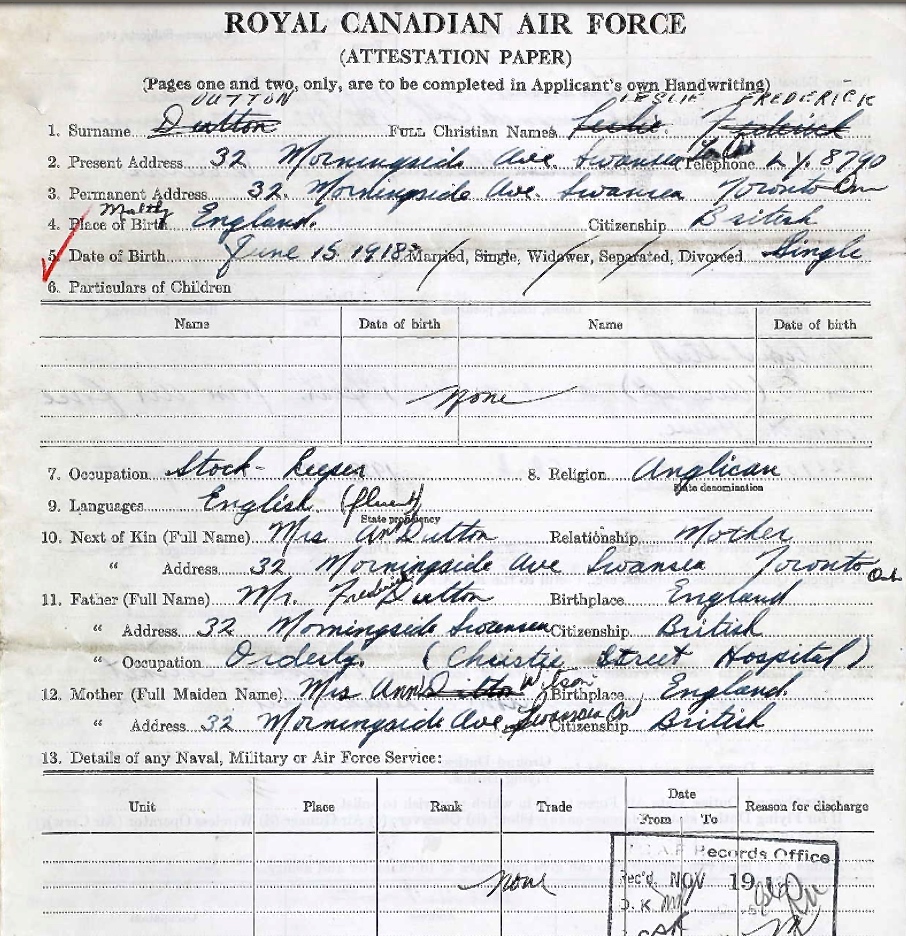 ROYAL CANADIAN AIR FORCE
(ATTESTATION PAPER)
(Pages one and two, only, are to be completed in Applicant's own Handwriting)
DUTTON LESLIE FREDERICK
1. Surname Dutton FULL Christian Names Leslie. Fredrick
2. Present Address 32 Morningside Ave. Swansea Tor. Ont Telephone Ly. 8790
3. Permanent Address 32. Morningside Ave. Swansea Toronto Ont
4. Place of Birth Maltby England. Citizenship British
5. Date of Birth June 15. 1918 Married, Single, Widower, Separated, Divorced Single
6. Particulars of Children
Name Date of birth Name Date of birth
None
7. Occupation Stock-keeper 8. Religion Anglican
State denomination
9. Languages English (fluent)
State proficiency
10. Next of Kin (Full Name) Mrs Ann Dutton Relationship Mother
" Address 32 Morningside Ave Swansea Toronto Ont
11. Father (Full Name) Mr. Fredrick Dutton Birthplace England
" Address 32 Morningside Swansea Citizenship British
" Occupation Orderly. (Christie Street Hospital)
12. Mother (Full Maiden Name) Mrs Ann Dutton Wilson Birthplace England.
" Address 32 Morningside Ave, Swansea Ont Citizenship British
13. Details of any Naval, Military or Air Force Service:
Unit Place Rank Trade Date Reason for discharge
From To
None
Records Office
Rec'd. NOV
O. K.